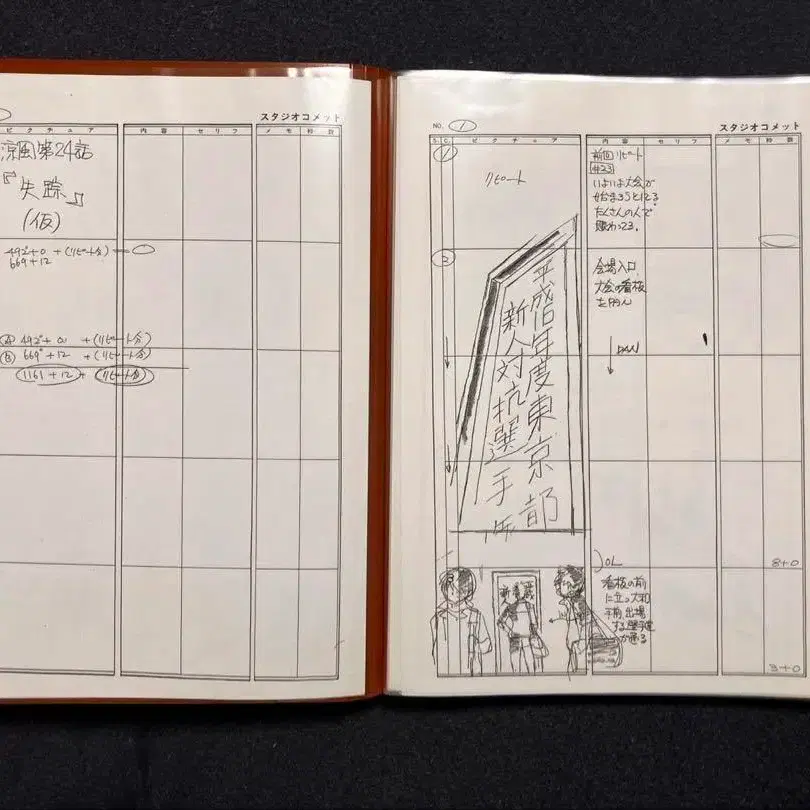 スタジオコメット
ピクチュア 内容 セリフ メモ 秒数
涼風第24話
『失踪』
(仮)
492+0 +(リピート分)
669+12
Ⓐ 492+0 +(リピート分)
Ⓑ 669+12 +(リピート分)
1161+12+(リピート分)
スタジオコメット
NO. 1
S. C. ピクチュア 内容 セリフ メモ 秒数
1
リピート
前回リピート
#23
いよいよ大会が
始まろうとしている
たくさんの人で
賑わってる。
2
会場入口
大会の看板
PAN
年度東京都
新人対抗選手
8+0
OL
看板の前
に立つ大和
手前、出場
する選手達
が通る
3+0